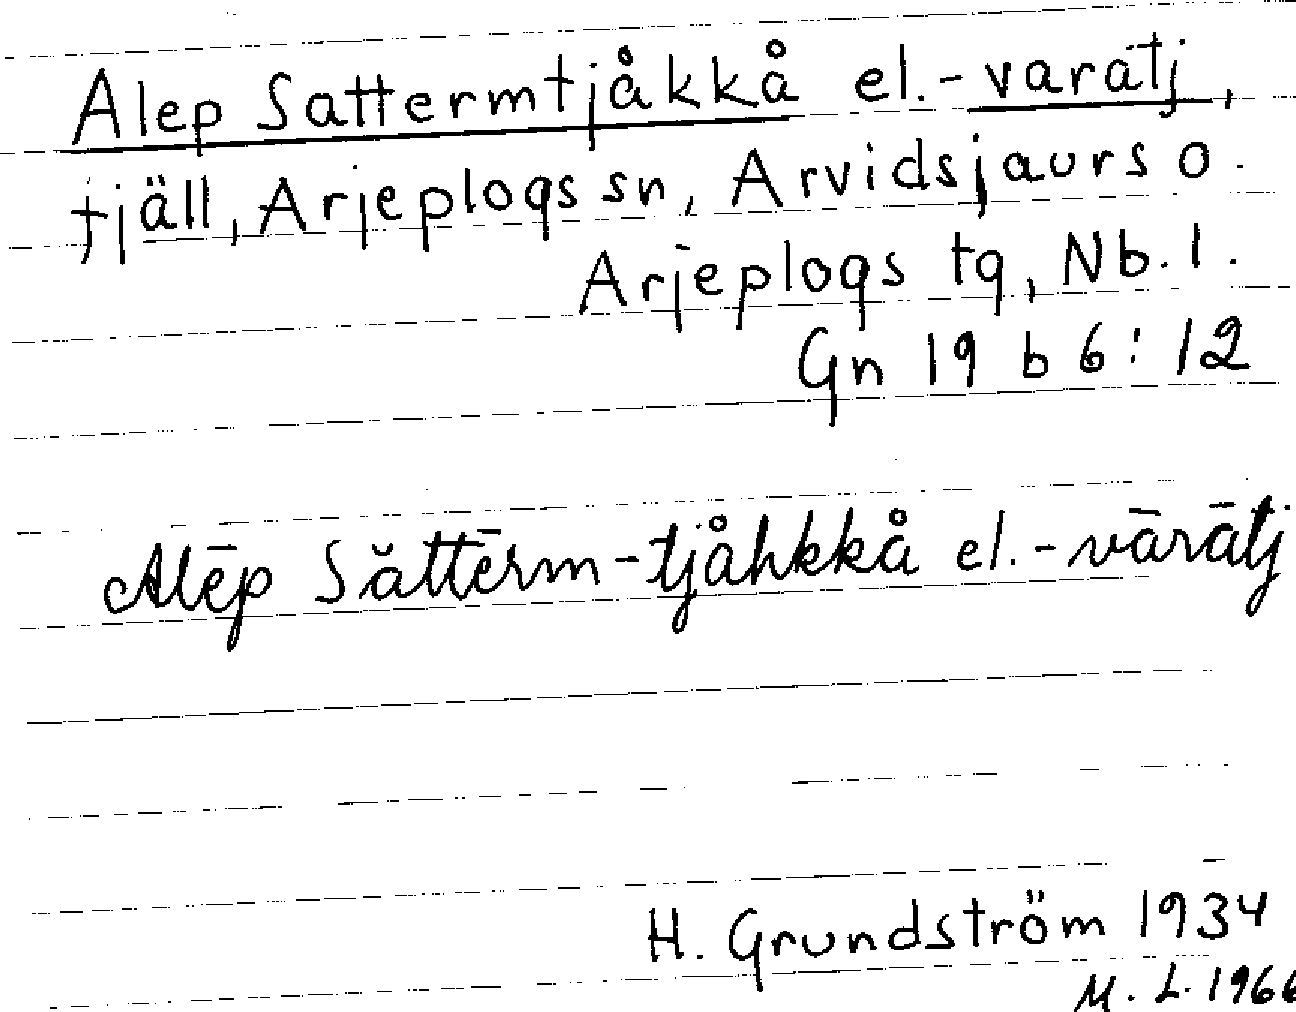 Alep Sattermtjåkkå el.-varatj,
fjäll, Arjeplogs sn, Arvidsjaurs o.
Arjeplogs tg, Nb.l.
Gn 19 b 6:12
Alēp Săttērm-tjåhkkå el.-vārātj
H. Grundström 1934
M.L. 1966